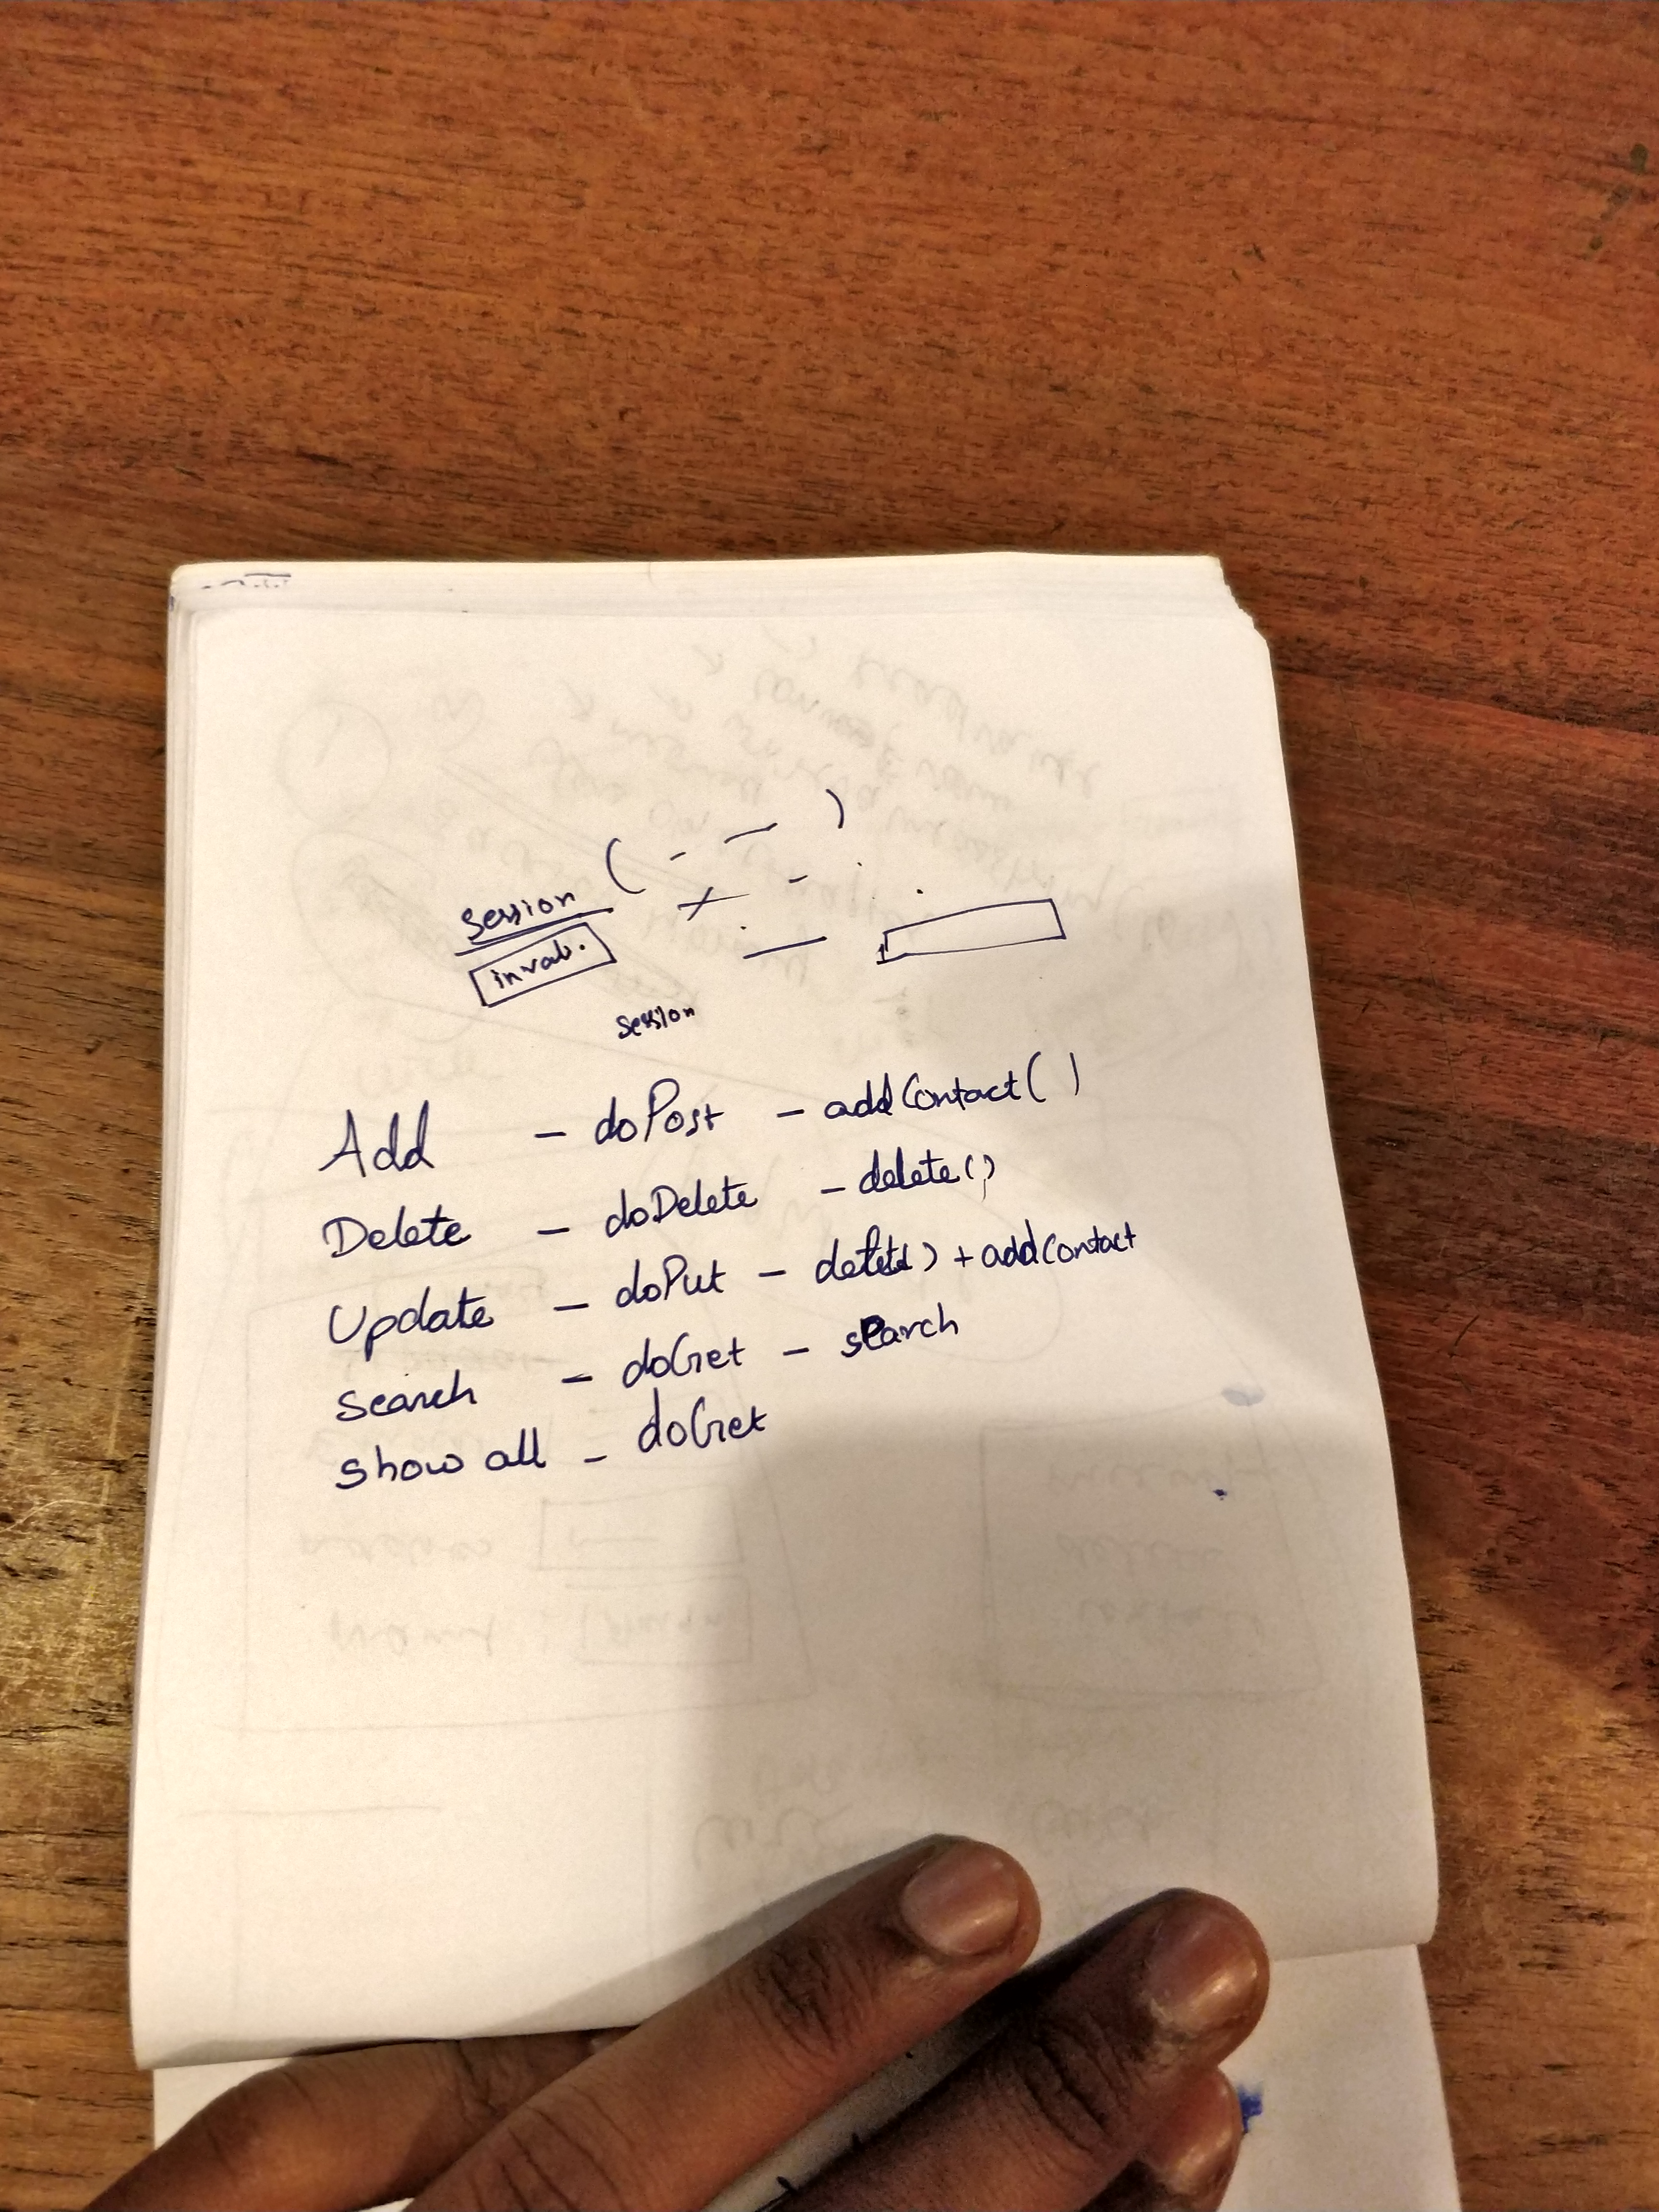 session ( - - )
inval.
session
Add - doPost - addContact( )
Delete - doDelete - delete()
Update - doPut - delete() + addContact
search - doGet - search
show all - doGet